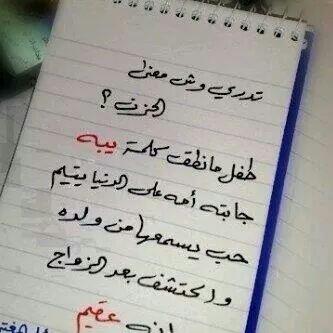 تدري وش معنى
الحزن ؟
طفل مانطق كلمة يبه
جابته أمه على الدنيا يتيم
حب يسمعها من ولده
واكتشف بعد الزواج
انه عقيم